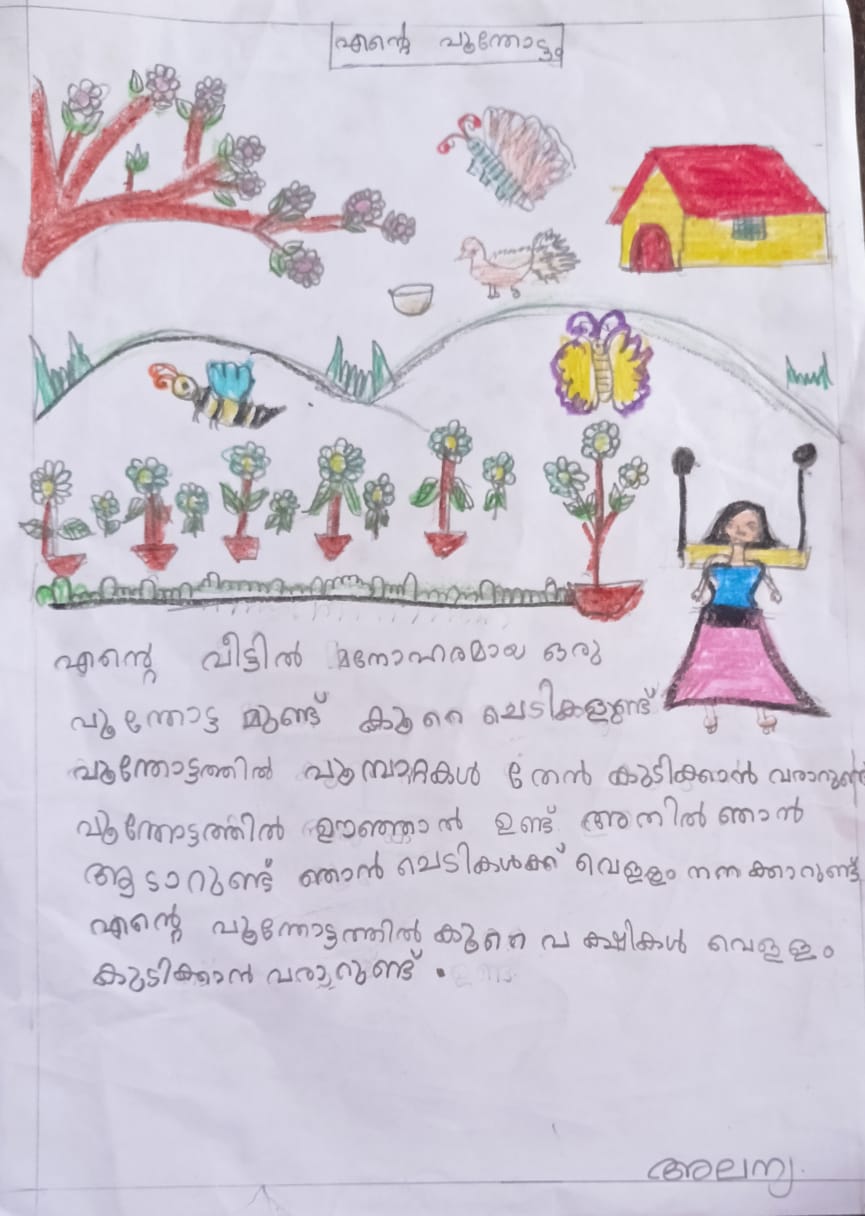 എന്റെ പൂന്തോട്ടം
എന്റെ വീട്ടിൽ മനോഹരമായ ഒരു
പൂന്തോട്ട മുണ്ട് കൂറെ ചെടികളുണ്ട്
പൂന്തോട്ടത്തിൽ പൂമ്പാറ്റകൾ തേൻ കുടിക്കാൻ വരാറുണ്ട്
പൂന്തോട്ടത്തിൽ ഊഞ്ഞാൽ ഉണ്ട് അതിൽ ഞാൻ
ആടാറുണ്ട് ഞാൻ ചെടികൾക്ക് വെള്ളം നനക്കാറുണ്ട്
എന്റെ പൂന്തോട്ടത്തിൽ കൂറെ പക്ഷികൾ വെള്ളം
കുടിക്കാൻ വരാറുണ്ട് .
അലന്യ.